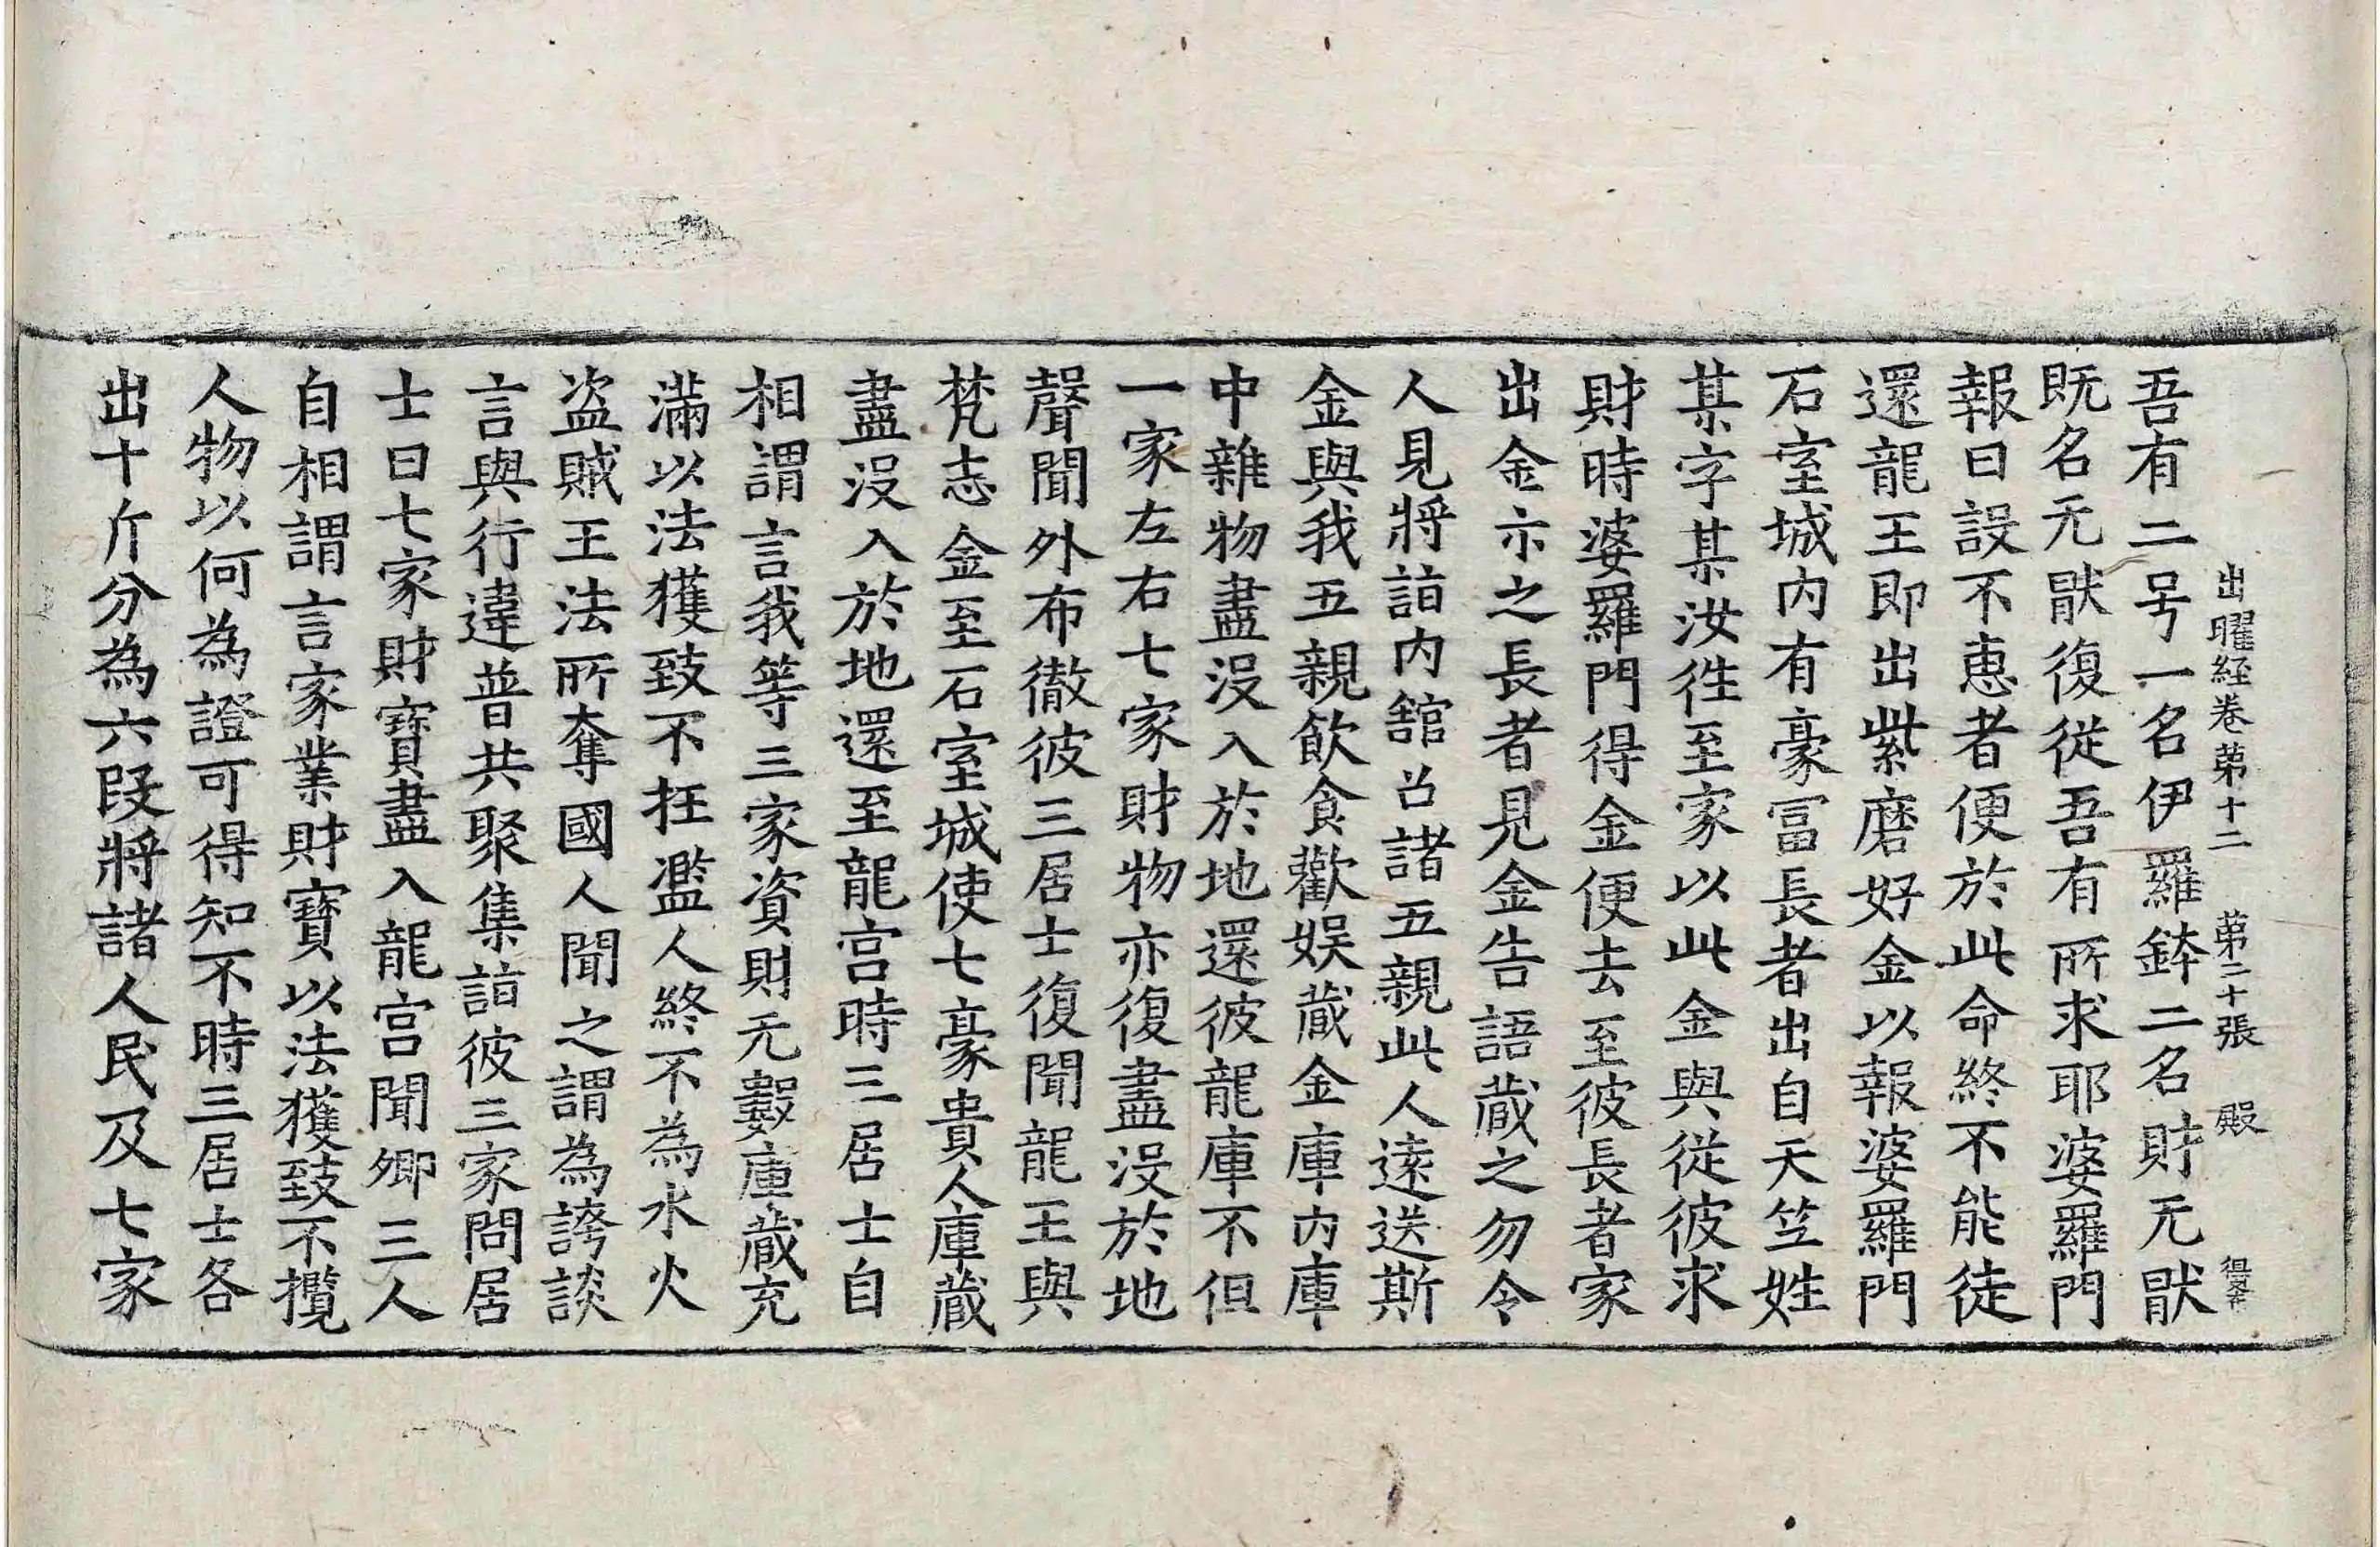 出曜経卷苐十二 苐二十張 殿
吾有二号一名伊羅鉢二名財无猒
既名无猒復従吾有所求耶婆羅門
報曰設不恵者便於此命終不能徒
還龍王即出紫磨好金以報婆羅門
石室城内有豪冨長者出自天竺姓
某字某汝徃至家以此金與従彼求
財時婆羅門得金便去至彼長者家
出金示之長者見金告語蔵之勿令
人見將詣内舘召諸五親此人逺送斯
金與我五親飲食歡娯蔵金庫内庫
中雜物盡没入於地還彼龍庫不但
一家左右七家財物亦復盡没於地
聲聞外布徹彼三居士復聞龍王與
梵志金至石室城使七豪貴人庫蔵
盡没入於地還至龍宫時三居士自
相謂言我等三家資財无數庫蔵充
滿以法獲致不抂濫人終不為水火
盗賊王法所奪國人聞之謂為誇談
言與行違普共聚集詣彼三家問居
士曰七家財寶盡入龍宫聞卿三人
自相謂言家業財寶以法獲致不攬
人物以何為證可得知不時三居士各
出十斤分為六段將諸人民及七家